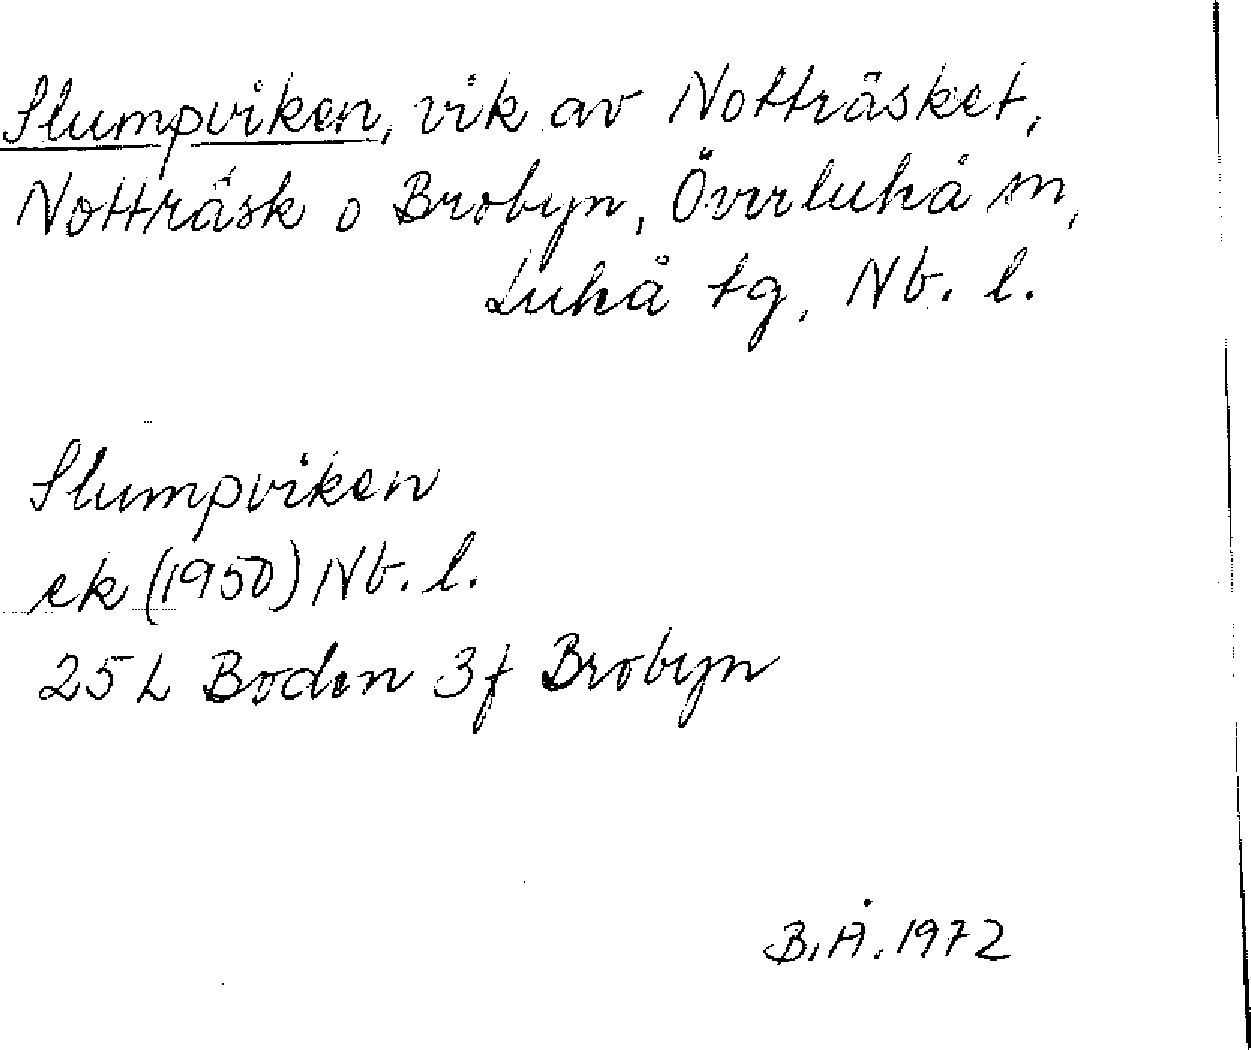 Slumpviken, vik av Notträsket,
Notträsk o Brobyn, Överluleå sn,
Luleå tg, Nb. l.
Slumpviken
ek (1950) Nb. l.
25 L Boden 3f Brobyn
B.Å. 1972